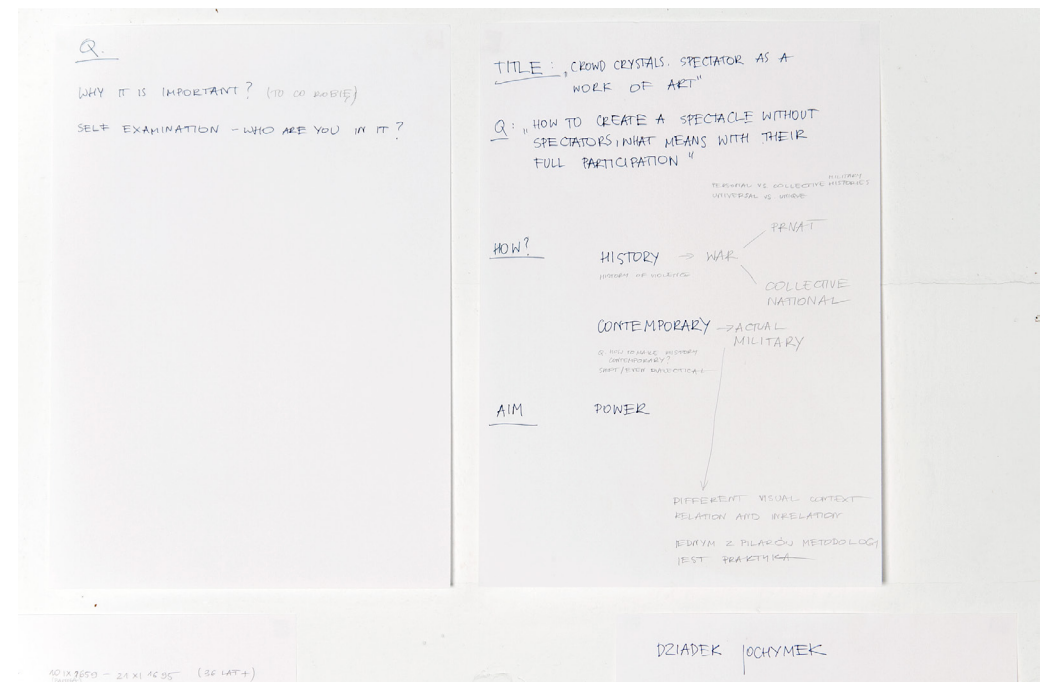 Q.
WHY IT IS IMPORTANT? (TO CO ROBIĘ)
SELF EXAMINATION - WHO ARE YOU IN IT?
TITLE: „CROWD CRYSTALS. SPECTATOR AS A
WORK OF ART"
Q: „HOW TO CREATE A SPECTACLE WITHOUT
SPECTATORS, WHAT MEANS WITH THEIR
FULL PARTICIPATION"
MILITARY
PERSONAL VS COLLECTIVE HISTORIES
UNIVERSAL VS UNIQUE
HOW?
HISTORY → WAR
HISTORY OF VIOLENCE
PRIVAT
COLLECTIVE
NATIONAL
CONTEMPORARY → ACTUAL
MILITARY
Q. HOW TO MAKE HISTORY
CONTEMPORARY?
AIM POWER
DIFFERENT VISUAL CONTEXT
RELATION AND INRELATION
JEDNYM Z FILARÓW METODOLOGY
JEST PRAKTYKA
DZIADEK JOCHYMEK
(36 LAT +)